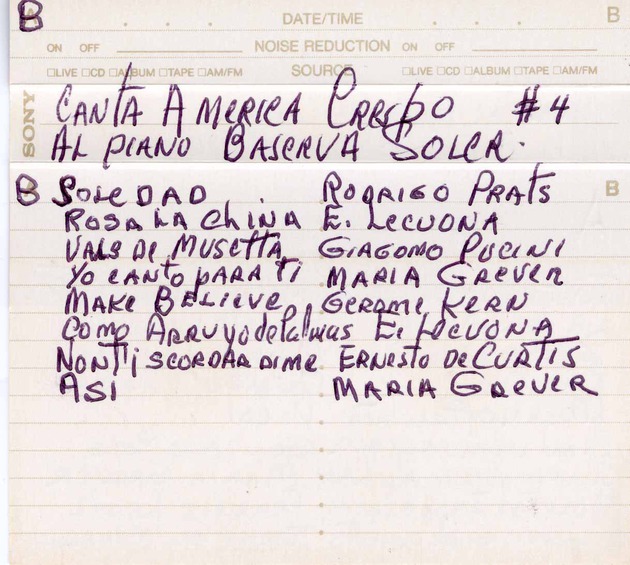 B B
DATE/TIME
ON OFF NOISE REDUCTION ON OFF
□LIVE □CD □ALBUM □TAPE □AM/FM SOURCE □LIVE □CD □ALBUM □TAPE □AM/FM
SONY
CANTA AMERICA CRESPO #4
AL PIANO BASERVA SOLER.
B SOLEDAD RODRIGO PRATS B
ROSA LA CHINA E. LECUONA
VALS DE MUSETTA GIAGOMO PUCINI
YO CANTO PARA TI MARIA GREVER
MAKE BELIEVE GEROME KERN
COMO ARRUYO de PALMAS E. LECUONA
NONTI SCORDAR DIME ERNESTO DE CURTIS
ASI MARIA GREVER